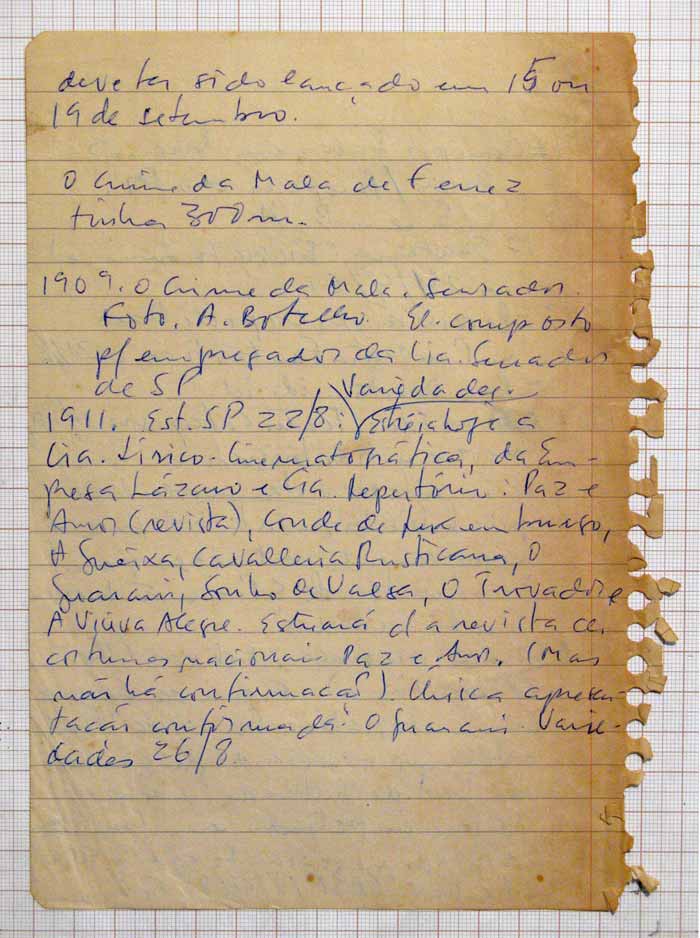 deve ter sido lançado em 15 ou
19 de setembro.
O Crime da Mala de Ferrez
tinha 300 m.
1909. O Crime da Mala. Serrador.
Foto. A. Botelho. El. composto
p/ empregados da Cia. Serrador
de SP
Variedades.
1911. Est. SP 22/8: Estréia hoje a
Cia. Lírico-Cinematográfica, da Em-
presa Lázaro e Cia. Repertório: Paz e
Amor (revista), Conde de Luxemburgo,
A Gueixa, Cavalleria Rusticana, O
Guarani, Sonho de Valsa, O Trovador e
A Viúva Alegre. Estreará c/ a revista de
costumes nacionais Paz e Amor. (Mas
não há confirmação). Única apresen-
tação confirmada: O Guarani. Varie-
dades 26/8.